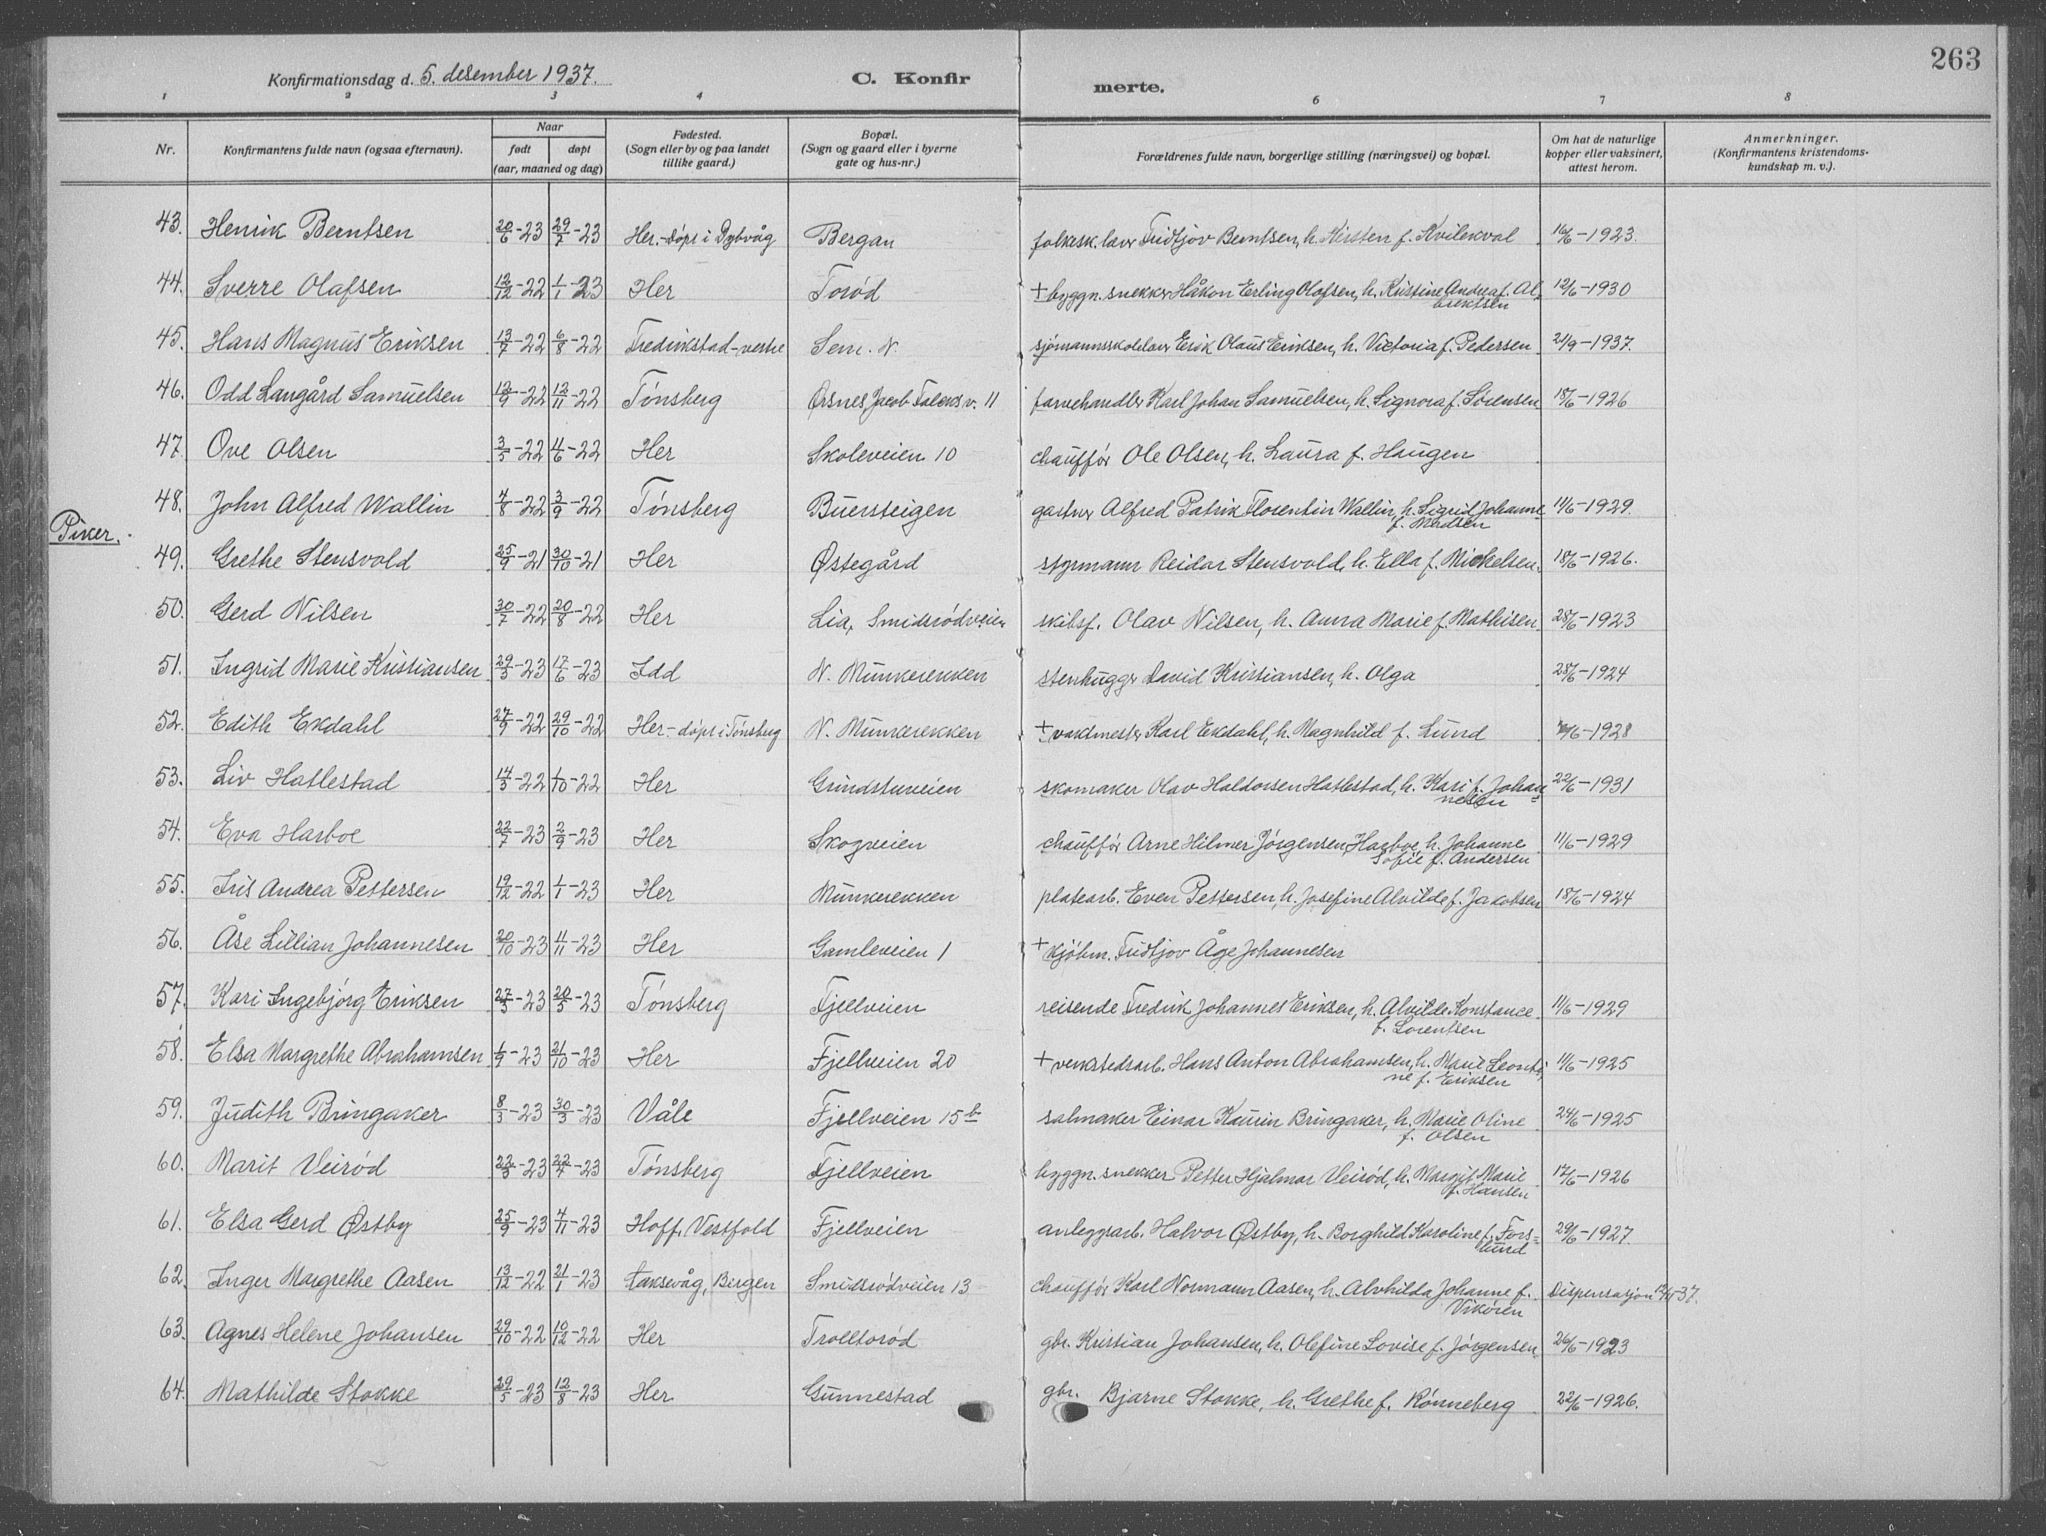 263
Konfirmationsdag d. 5. desember 1937. C. Konfir merte.
1 2 3 4 6 7 8
Nr. Konfirmantens fulde navn (ogsaa efternavn). Naar født døpt (aar, maaned og dag) Fødested. (Sogn eller by og paa landet tillike gaard.) Bopæl. (Sogn og gaard eller i byerne gate og hus-nr.) Forældrenes fulde navn, borgerlige stilling (næringsvei) og bopæl. Om hat de naturlige kopper eller vaksinert, attest herom. Anmerkninger. (Konfirmantens kristendoms- kundskap m. v.).
43. Henrik Berntsen 20/6-23 29/7-23 Her.-døpt i Dybvåg Bergan folkesk.lærer Fridtjov Berntsen, h. Kirsten f. Kvilekval 16/6-1923.
44. Sverre Olafsen 12/12-22 1/1-23 Her Torød + byggn. snekker Håkon Erling Olafsen, h. Kristine Andrea f. Al- 12/6-1930
brektsen
45. Hans Magnus Eriksen 13/7-22 6/8-22 Fredrikstad-vestre Sem. N. sjømannsskolelærer Erik Olaus Eriksen, h. Victoria f. Pedersen 21/9-1937.
46. Odd Langård Samuelsen 12/9-22 12/11-22 Tønsberg Ørsnes, Jacob Falcks v. 11 farvehandler Karl Johan Samuelsen, h. Signora f. Sørensen 18/6-1926
47. Ove Olsen 3/5-22 4/6-22 Her Skoleveien 10 chauffør Ole Olsen, h. Laura f. Haugen
48. John Alfred Wallin 4/8-22 3/9-22 Tønsberg Buersteigen gartner Alfred Patrik Florentin Wallin, h. Sigrid Johanne 11/6-1929.
f. Madsen
Piker.
49. Grethe Stensvold 25/9-21 30/10-21 Her Østegård styrmann Reidar Stensvold, h. Ella f. Mickelsen. 18/6-1926.
50. Gerd Nilsen 30/7-22 20/8-22 Her Lia, Smidsrødveien skibsf. Olav Nilsen, h. Anna Marie f. Mathisen 28/6-1923
51. Ingrid Marie Kristiansen 29/3-23 17/6-23 Idd N. Munkerekken stenhugger David Kristiansen, h. Olga 28/6-1924
52. Edith Ekdahl 27/9-22 29/10-22 Her-døpt i Tønsberg N. Munkerekken + vaktmester Karl Ekdahl, h. Magnhild f. Lund /6-1928
53. Liv Hatlestad 14/3-22 1/10-22 Her Grindstuveien skomaker Olav Haldorsen Hatlestad, h. Kari f. Johan= 22/6-1931
nesen
54. Eva Harboe 22/7-23 2/9-23 Her Skogveien chauffør Arne Hilmer Jørgensen Harboe, h. Johanne 11/6-1929
Sofie f. Andersen
55. Iris Andrea Pettersen 19/12-22 1/1-23 Her Munkerekken platearb. Even Pettersen, h. Josefine Alvilde f. Jakobsen 18/6-1924
56. Åse Lillian Johannesen 20/10-23 11/11-23 Her Gamleveien 1 + kjøbm. Fridtjov Åge Johannesen
57. Kari Ingebjørg Eriksen 27/3-23 20/5-23 Tønsberg Fjellveien reisende Fredrik Johannes Eriksen, h. Alvilde Konstance 11/6-1929
f. Lorentsen
58. Elsa Margrethe Abrahamsen 1/9-23 21/10-23 Her Fjellveien 20 + verkstedsarb. Hans Anton Abrahamsen, h. Marie Leonti- 11/6-1925
ne f. Eriksen
59. Judith Bringaker 8/3-23 30/3-23 Våle Fjellveien 15b salmaker Einar Kaurin Bringaker, h. Marie Oline 24/6-1925
f. Olsen
60. Marit Veirød 22/3-23 22/4-23 Tønsberg Fjellveien byggn. snekker Petter Hjalmar Veirød, h. Margit Marie 17/6-1926
f. Hansen
61. Elsa Gerd Østby 25/9-23 4/11-23 Hoff, Vestfold Fjellveien anleggsarb. Halvor Østby, h. Borghild Karoline f. Fors- 29/6-1927.
lund
62. Inger Margrethe Aasen 13/12-22 21/1-23 Laksevåg, Bergen Smidsrødveien 13 chauffør Karl Normann Aasen, h. Alvhilda Johanne f. Dispensasjon 37.
Vikøren
63. Agnes Helene Johansen 29/10-22 10/12-22 Her Trolltorød gbr. Kristian Johansen, h. Olefine Lovise f. Jørgensen 26/6-1923
64. Mathilde Stokke 29/5-23 12/8-23 Her Gunnestad gbr. Bjarne Stokke, h. Grethe f. Rønneberg 22/6-1926.